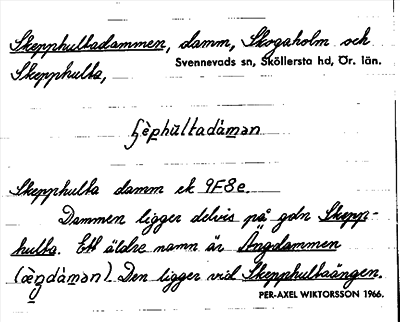 Skepphultadammen, damm, Skogaholm och
Svennevads sn, Sköllersta hd, Ör. län.
Skepphulta,
Skepphulta damm ek 9F8e.
Dammen ligger delvis på gdn Skepp-
hulta. Ett äldre namn är Ängdammen
(æ̀ŋdàmən). Den ligger vid Skepphultaängen.
PER-AXEL WIKTORSSON 1966.